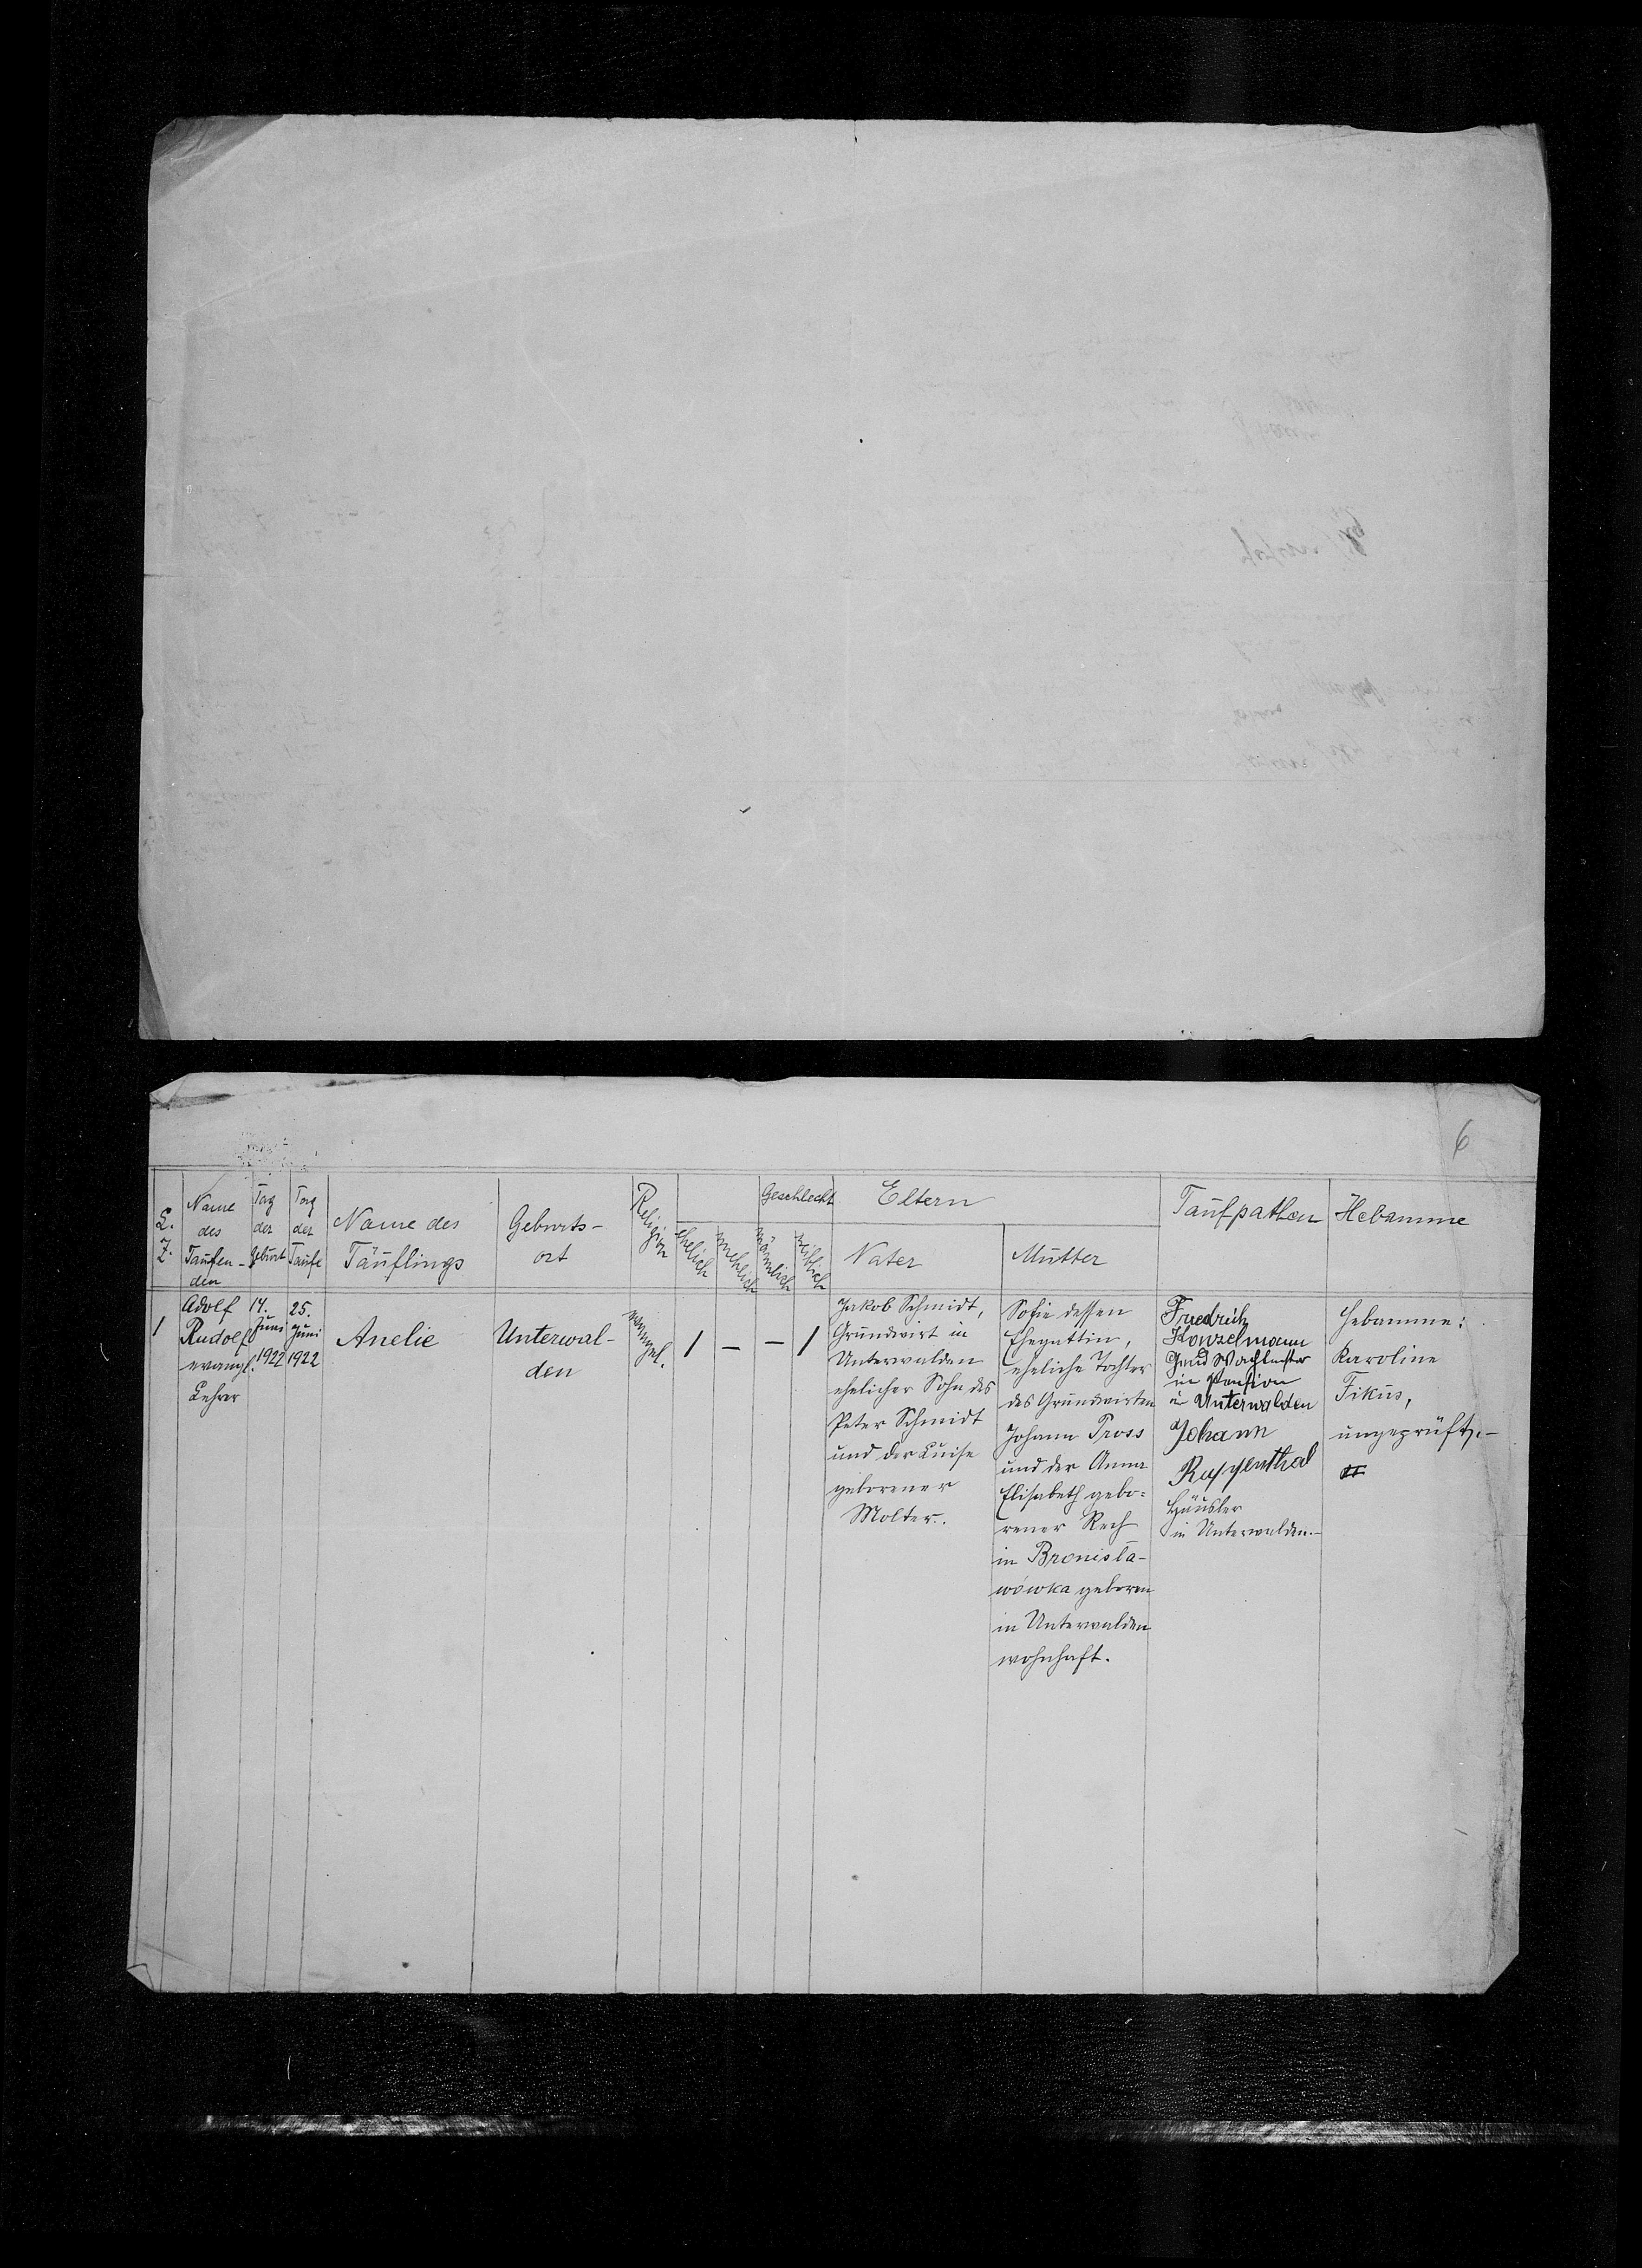 6
L. Z.
Name des Taufen- den
Tag der Geburt
Tag der Taufe
Name des Täuflings
Geburts- ort
Religion
ehelich
unehelich
Geschlecht
männlich
weiblich
Eltern
Vater
Mutter
Taufpathen
Hebamme
1
Adolf
Rudolf
evangl.
Lehrer
14.
Juni
1922
25.
Juni
1922
Anelie
Unterwal-
den
evangel.
1
—
—
1
Jakob Schmidt,
Grundwirt in
Unterwalden
ehelicher Sohn des
Peter Schmidt
und der Luise
geborener
Molter.
Sofie dessen
Ehegattin,
eheliche Tochter
des Grundwirten
Johann Tross
und der Anna
Elisabeth gebo-
rener Rech
in Bronisła-
wówka geboren
in Unterwalden
wohnhaft.
Friedrich
Konzelmann
Gend Wachtmstr
in Pension
in Unterwalden
Johann
Ruppenthal
Häusler
in Unterwalden.—
Hebamme:
Karoline
Tikus,
ungeprüft.—